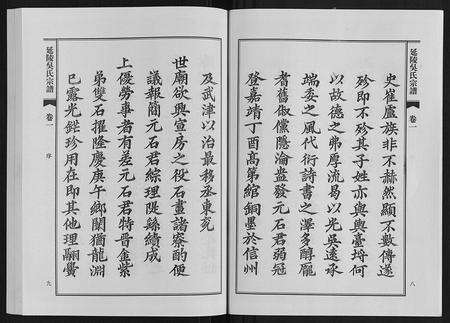 延陵吳氏宗譜
卷一
八
史崔盧族非不赫然顯不數傳遂
殄即不殄其子姓亦與輿臺埒何
以故德之弗厚流易以光吳遠承
端委之風代衍詩書之澤多醇龐
耆舊俶儻隱淪益發元石君弱冠
登嘉靖丁酉高第綰銅墨於信州
及武津以治最移丞東兗
世廟欲興宣房之役石畫諸寮酌便
議報簡元石君綜理隄絲績成
上優勞事者有差元石君特晉金紫
弟雙石擢隆慶庚午鄉闈猶龍淵
已露光鋩珍用在即其他理翮黌
延陵吳氏宗譜
卷一
序
九